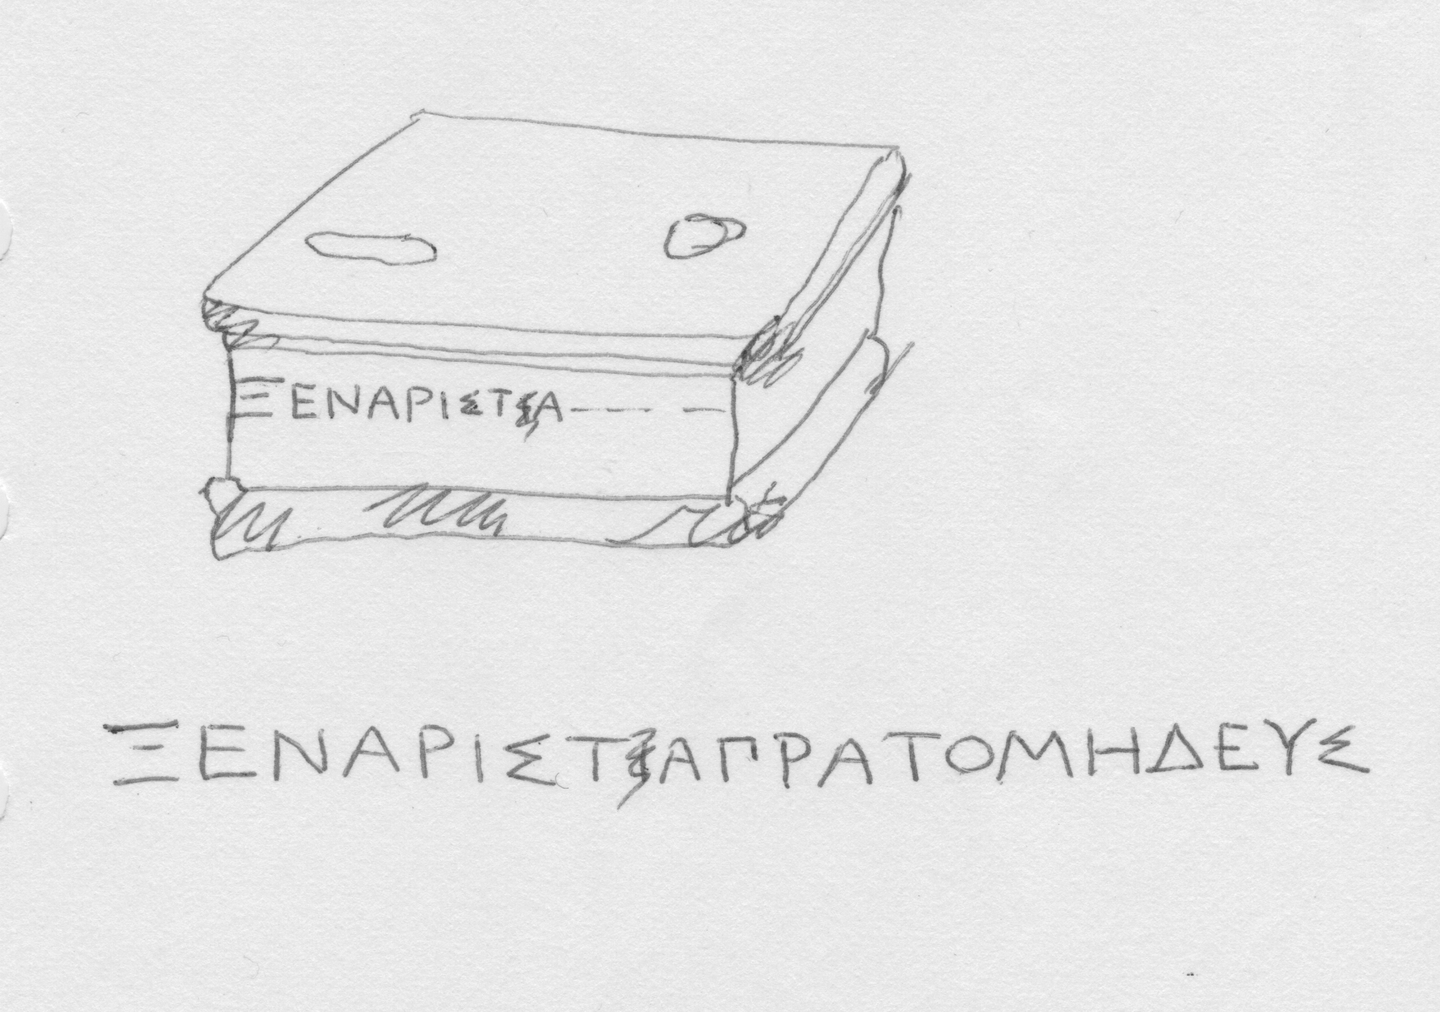 ΞΕΝΑΡΙΣΤΑ
ΞΕΝΑΡΙΣΤΑΠΡΑΤΟΜΗΔΕΥΣ